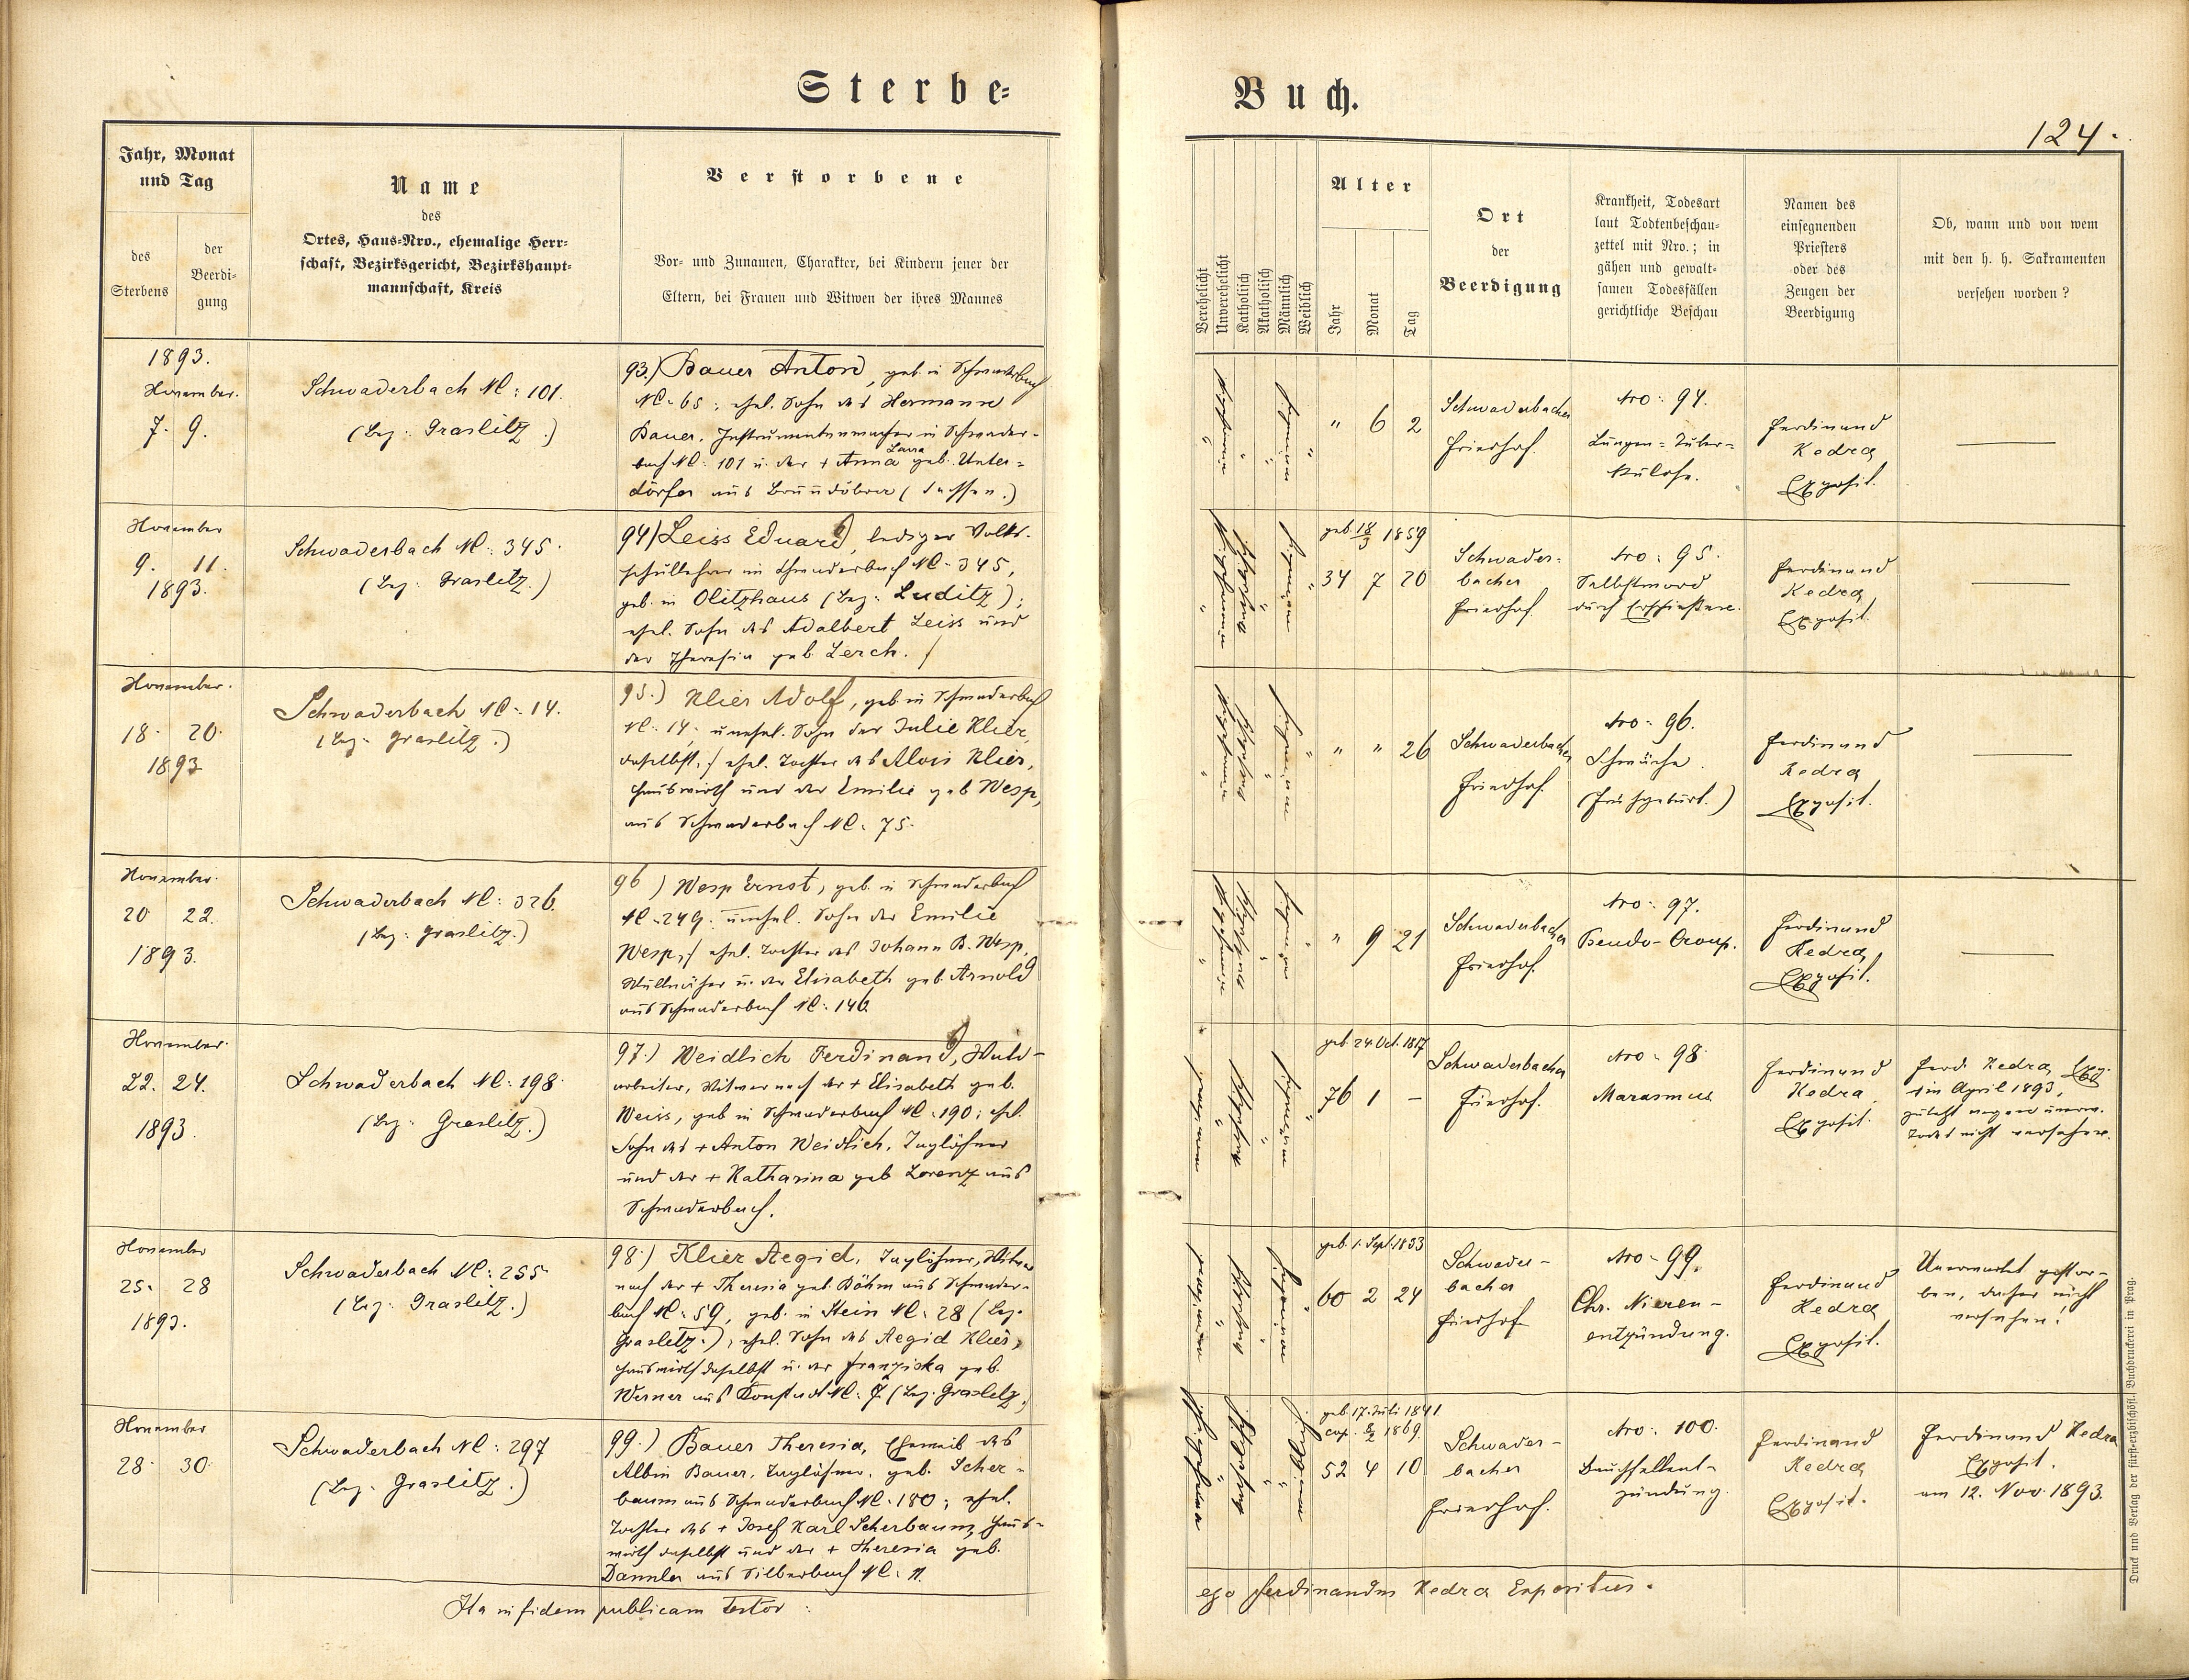 Sterbe-
Buch.
124.
Jahr, Monat
und Tag
des
Sterbens
der
Beerdi-
gung
Name
des
Ortes, Haus-Nro., ehemalige Herr-
schaft, Bezirksgericht, Bezirkshaupt-
mannschaft, Kreis
Verstorbene
Vor- und Zunamen, Charakter, bei Kindern jener der
Eltern, bei Frauen und Witwen der ihres Mannes
Verehelicht
Unverehelicht
Katholisch
Akatholisch
Männlich
Weiblich
Alter
Jahr
Monat
Tag
Ort
der
Beerdigung
Krankheit, Todesart
laut Todtenbeschau-
zettel mit Nro.; in
gähen und gewalt-
samen Todesfällen
gerichtliche Beschau
Namen des
einsegnenden
Priesters
oder des
Zeugen der
Beerdigung
Ob, wann und von wem
mit den h. h. Sakramenten
versehen worden?
1893.
November.
7. 9.
Schwaderbach NC: 101.
(Bez: Graslitz.)
93.) Bauer Anton, geb. in Schwaderbach
NC: 65; ehel. Sohn des Hermann
Bauer, Instrumentenmacher in Schwader-
bach NC: 101 u. der + Anna Laura geb. Unter-
dörfer aus Brunndöbra (Sachsen.)
" 6 2
Schwaderbacher
Friedhof.
Nro: 94.
Lungen-Tuber-
kulose.
Ferdinand
Kedra
Exposit.
November
9. 11.
1893.
Schwaderbach NC: 345.
(Bez: Graslitz.)
94) Leiss Eduard, lediger Volks-
schullehrer in Schwaderbach NC: 345,
geb. in Olitzhaus (Bez: Luditz);
ehel. Sohn des Adalbert Leiss und
der Theresia geb. Lerch.
geb. 18/3 1859
34 7 20
Schwader-
bacher
Friedhof
Nro: 95.
Selbstmord
durch Erschießen.
Ferdinand
Kedra
Exposit.
November.
18. 20.
1893
Schwaderbach NC: 14.
(Bez: Graslitz.)
95.) Klier Adolf, geb. in Schwaderbach
NC: 14; unehel. Sohn der Julie Klier,
daselbst, ehel. Tochter des Alois Klier,
Hauswirth und der Emilie geb. Wesp,
aus Schwaderbach NC: 75.
" " 26
Schwaderbacher
Friedhof.
Nro: 96.
Schwäche.
(Frühgeburt.)
Ferdinand
Kedra
Exposit.
November.
20 22.
1893.
Schwaderbach NC: 326.
(Bez: Graslitz.)
96) Wesp Ernst, geb. in Schwaderbach
NC: 249. unehel. Sohn der Emilie
Wesp, ehel. Tochter des Johann B. Wesp,
u. der Elisabeth geb. Arnold
aus Schwaderbach NC: 146.
" 9 21
Schwaderbacher
Friedhof.
Nro: 97.
Pseudo-Croup.
Ferdinand
Kedra
Exposit.
November.
22. 24.
1893.
Schwaderbach NC: 198.
(Bez: Graslitz.)
97.) Weidlich Ferdinand, Wald-
arbeiter, Witwer nach der + Elisabeth geb.
Weiss, geb. in Schwaderbach NC: 190; ehel.
Sohn des + Anton Weidlich, Taglöhner
und der + Katharina geb. Lorenz aus
Schwaderbach.
geb. 24 Oct. 1817
76 1 -
Schwaderbacher
Friedhof.
Nro: 98
Marasmus
Ferdinand
Kedra
Exposit.
Ferd. Kedra, Exp.
im April 1893,
zuletzt wegen unerw.
Todes nicht versehen.
November
25. 28
1893.
Schwaderbach NC: 255
(Bez: Graslitz.)
98.) Klier Aegid, Taglöhner, Witwer
nach der + Theresia geb. Böhm aus Schwader-
bach NC: 59, geb. in Stein NC: 28 (Bez.
Graslitz.), ehel. Sohn des Aegid Klier,
Hauswirth daselbst u. der Franziska geb.
Werner aus Konstadt NC: 7 (Bez. Graslitz.
geb. 1. Sept. 1833
60 2 24
Schwader-
bacher
Friedhof
Nro: 99.
Chr. Nieren-
entzündung.
Ferdinand
Kedra
Exposit.
Unerwartet gestor-
ben, daher nicht
versehen!
November
28. 30.
Schwaderbach NC: 297
(Bez. Graslitz.)
99.) Bauer Theresia, Eheweib des
Albin Bauer, Taglöhner, geb. Scher-
baum aus Schwaderbach NC: 180; ehel.
Tochter des + Josef Karl Scherbaum, Haus-
wirth daselbst und der + Theresia geb.
Dannler aus Silberbach NC: 11.
geb. 17. Juli 1841
cop. 1869.
52 4 10
Schwader-
bacher
Friedhof.
Nro: 100.
Bauchfellent-
zündung.
Ferdinand
Kedra
Exposit.
Ferdinand Kedra
Exposit.
am 12. Nov. 1893.
Ita in fidem publicam testor:
ego Ferdinandus Kedra Expositus.
Druck und Verlag der fürst-erzbischöfl. Buchdruckerei in Prag.